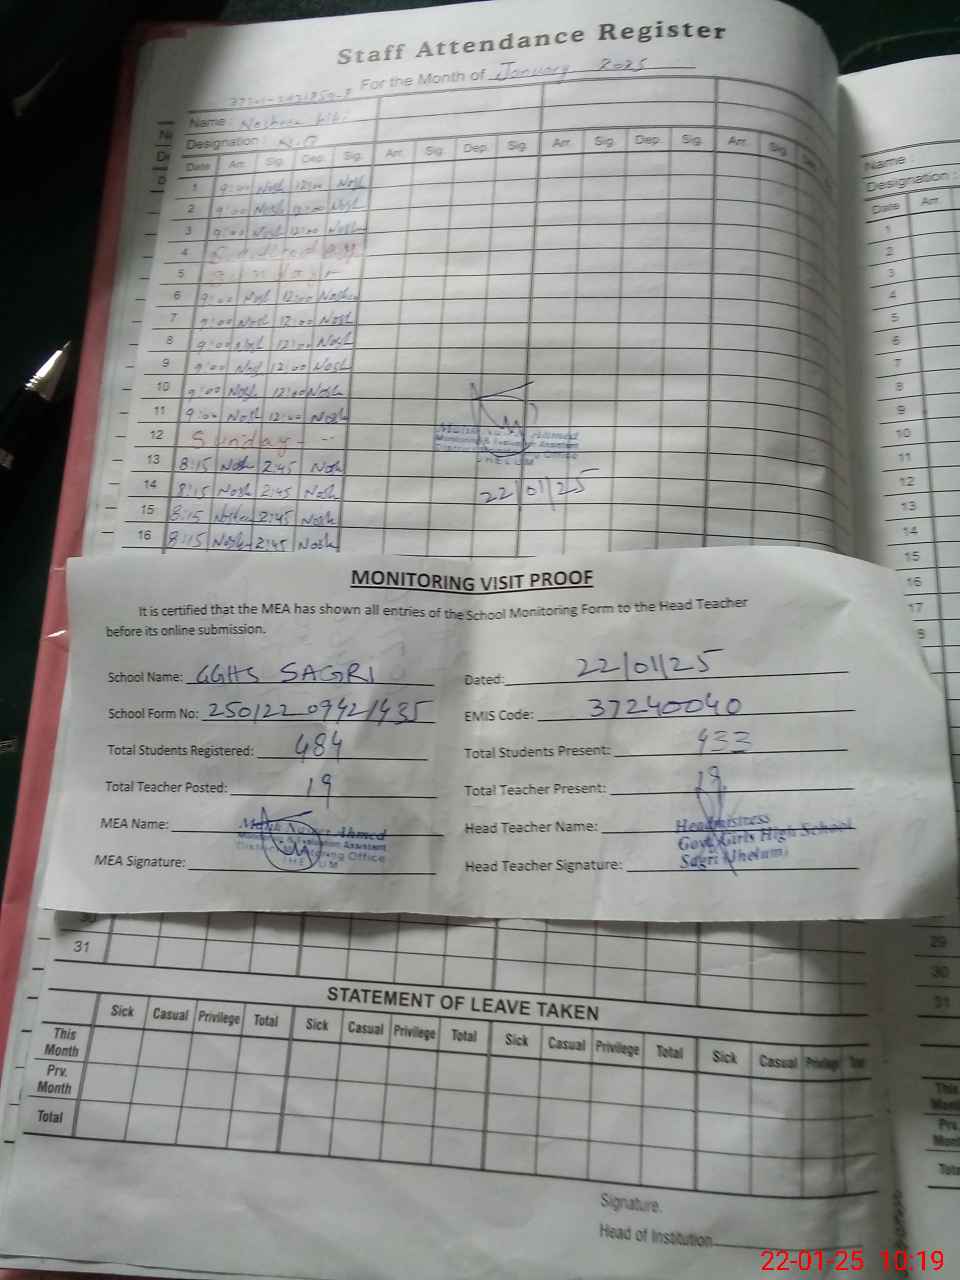 Staff Attendance Register
For the Month of January 2025
Name :
Designation :
Date Arr. Sig. Dep. Sig. Arr. Sig. Dep. Sig. Arr. Sig. Dep. Sig. Arr. Sig.
1 9:00 Nosh 12:00 Nosh
2 9:00 Nosh 12:00 Nosh
3 9:00 Nosh 12:00 Nosh
4
5 Sunday
6 9:00 Nosh 12:00
7 9:00 Nosh 12:00 Nosh
8 9:00 Nosh 12:00 Nosh
9 9:00 Nosh 12:00 Nosh
10 9:00 Nosh 12:00 Nosh
11 9:00 Nosh 12:00 Nosh
12 Sunday
13 8:15 Nosh 2:45 Nosh
14 8:15 Nosh 2:45 Nosh
15 8:15 2:45 Nosh
16 8:15 Nosh 2:45 Nosh
Ahmed
Monitoring & Evaluation Assistant
District Monitoring Office
JHELUM
22/01/25
MONITORING VISIT PROOF
It is certified that the MEA has shown all entries of the School Monitoring Form to the Head Teacher
before its online submission.
School Name: GGHS SAGRI Dated: 22/01/25
School Form No: EMIS Code: 37240040
Total Students Registered: 484 Total Students Present: 433
Total Teacher Posted: 19 Total Teacher Present: 19
MEA Name: Ahmed
Monitoring & Evaluation Assistant
District Monitoring Office
JHELUM
MEA Signature:
Head Teacher Name: Headmistress
Govt. Girls High School
Sagri (Jhelum)
Head Teacher Signature:
30
31
STATEMENT OF LEAVE TAKEN
Sick Casual Privilege Total Sick Casual Privilege Total Sick Casual Privilege Total Sick Casual Privilege Total
This
Month
Prv.
Month
Total
Signature.
Head of Institution
Name :
Designation :
Date Arr.
1
2
3
4
5
6
7
8
9
10
11
12
13
14
15
16
17
29
30
31
This
Prv.
22-01-25 10:19